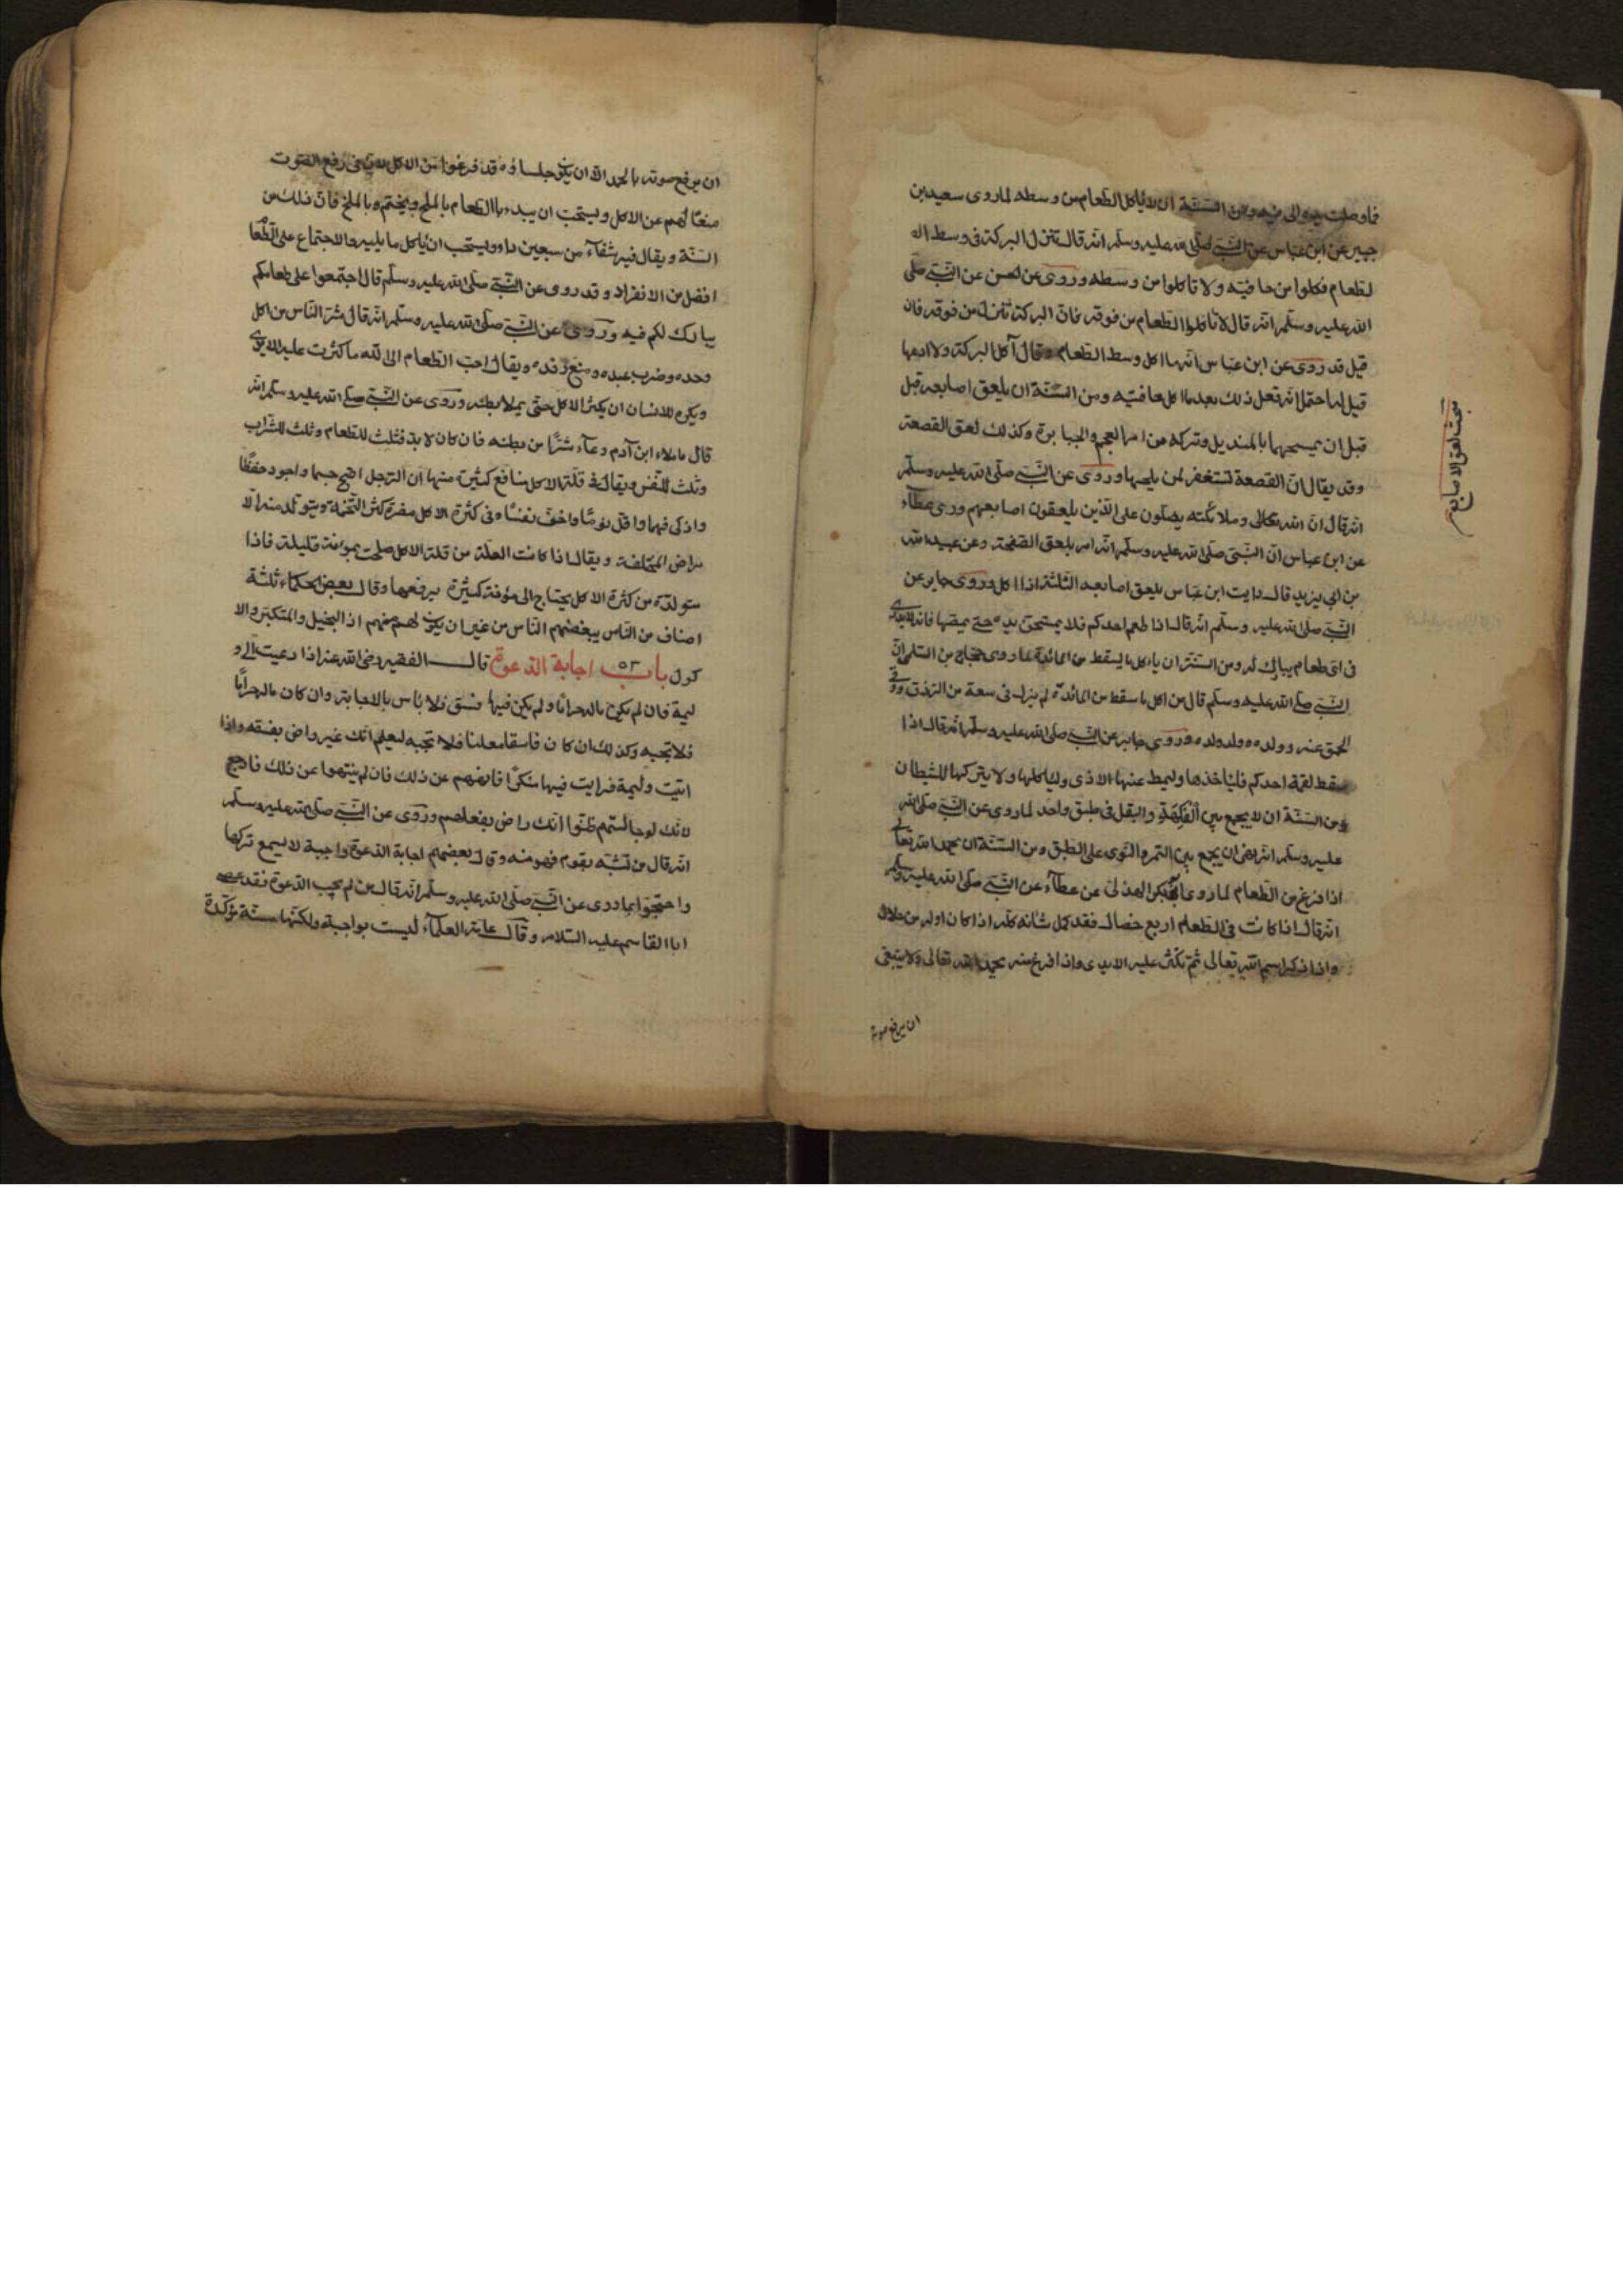 فاوصلت يده الى فيه ومن السنة ان لا ياكل الطعام من وسطه لما روى سعيد بن
جبير عن ابن عباس عن النبي صلى الله عليه وسلم انه قال تنزل البركة فى وسط ال
لطعام فكلوا من حافتيه ولا تاكلوا من وسطه وروى عن الحسن عن النبي صلى
الله عليه وسلم انه قال لا تاكلوا الطعام من فوقه فان البركة تنزل من فوقه فان
قيل قد روى عن ابن عباس انه اكل وسط الطعام وقال آكل البركة ولا ادعها
قيل له احتمل انه فعل ذلك بعد ما اكل حافتيه ومن السنة ان يلعق اصابعه قبل
قبل ان يمسحهما بالمنديل وتركه من امر العجم والجبابرة وكذلك لعق القصعة
وقد يقال ان القصعة تستغفر لمن يلحسها وروى عن النبي صلى الله عليه وسلم
انه قال ان الله تعالى وملائكته يصلون على الذين يلعقون اصابعهم وروى عطاء
عن ابن عباس ان النبي صلى الله عليه وسلم انه امر بلعق الصفحة وعن عبيد الله
بن ابي يزيد قال رايت ابن عباس يلعق اصابعه الثلثة اذا اكل وروى جابر عن
النبي صلى الله عليه وسلم انه قال اذا طعم احدكم فلا يمسحن يده حتى يمصها فانه لا يدرى
فى اى طعام يبارك له ومن السنة ان ياكل ما يسقط من المائدة لما روى حجاج بن السلمى ان
النبي صلى الله عليه وسلم قال من اكل ما سقط من المائدة لم يزل فى سعة من الرزق ووقى
الحمق عنه وولده وولد ولده وروى جابر عن النبي صلى الله عليه وسلم انه قال اذا
سقط لقمة احدكم فلياخذها وليمط عنها الاذى ولياكلها ولا يتركها للشيطان
ومن السنة ان لا يجمع بين الفاكهة والبقل فى طبق واحد لما روى عن النبي صلى الله
عليه وسلم انه نهى ان يجمع بين التمر والنوى على الطبق ومن السنة ان يحمد الله تعالى
اذا فرغ من الطعام لما روى ابو بكر الهذلى عن عطاء عن النبي صلى الله عليه وسلم
انه قال اذا كانت فى الطعام اربع خصال فقد كمل شانه كله اذا كان اوله من حلال
واذا ذكر اسم الله تعالى ثم تكثر عليه الايدى واذا فرغ منه يحمد الله تعالى ولا ينبغى
ان يرفع صوته
مبحث لعق الاصابع
ان يرفع صوته بالحمد الا ان يكون جلساؤه قد فرغوا من الاكل لان فى رفع الصوت
منعا لهم عن الاكل ويستحب ان يبدء بالطعام بالملح ويختم بالملح فان ذلك من
السنة ويقال فيه شفاء من سبعين داء ويستحب ان ياكل ما يليه والاجتماع على الطعا
افضل من الانفراد وقد روى عن النبي صلى الله عليه وسلم قال اجتمعوا على طعامكم
يبارك لكم فيه وروى عن النبي صلى الله عليه وسلم انه قال شر الناس من اكل
وحده وضرب عبده ومنع رفده ويقال احب الطعام الى الله ما كثرت عليه الايدى
ويكره للانسان ان يكثر الاكل حتى يملا بطنه وروى عن النبي صلى الله عليه وسلم انه
قال ما ملاء ابن آدم وعاء شرا من بطنه فان كان لا بد فثلث للطعام وثلث للشراب
وثلث للنفس ويقال فى قلة الاكل منافع كثيرة منها ان الرجل اصح جسما واجود حفظا
واذكى فهما واقل نوما واخف نفسا وفى كثرة الاكل مضرة كثر التخمة ويتولد منه الا
مراض المختلفة ويقال اذا كانت العلة من قلة الاكل صلحت بمونة قليلة فاذا
متولدة من كثرة الاكل يحتاج الى مؤنة كثيرة يرفعها وقال بعض الحكماء ثلثة
اصناف من الناس يبغضهم الناس من غير ان يكون لهم منهم اذا البخيل والمتكبر والا
كول باب ٥٣ اجابة الدعوة قال الفقيه رضى الله عنه اذا دعيت الى و
ليمة فان لم يكن ماله حراما ولم يكن فيها فسق فلا باس بالاجابة وان كان ماله حراما
فلا تجبه وكذلك ان كان فاسقا معلنا فلا تجبه ليعلم انك غير راض بفسقه واذا
اتيت وليمة فرايت فيها منكرا فانههم عن ذلك فان لم ينتهوا عن ذلك فارجع
لانك لو جالستهم ظنوا انك راض بفعلهم وروى عن النبي صلى الله عليه وسلم
انه قال من تشبه بقوم فهو منه وقال بعضهم اجابة الدعوة واجبة لا يسع تركها
واحتجوا بما روى عن النبي صلى الله عليه وسلم انه قال من لم يجب الدعوة فقد عصى
ابا القاسم عليه السلام وقال عامة العلماء ليست بواجبة ولكنها سنة مؤكدة